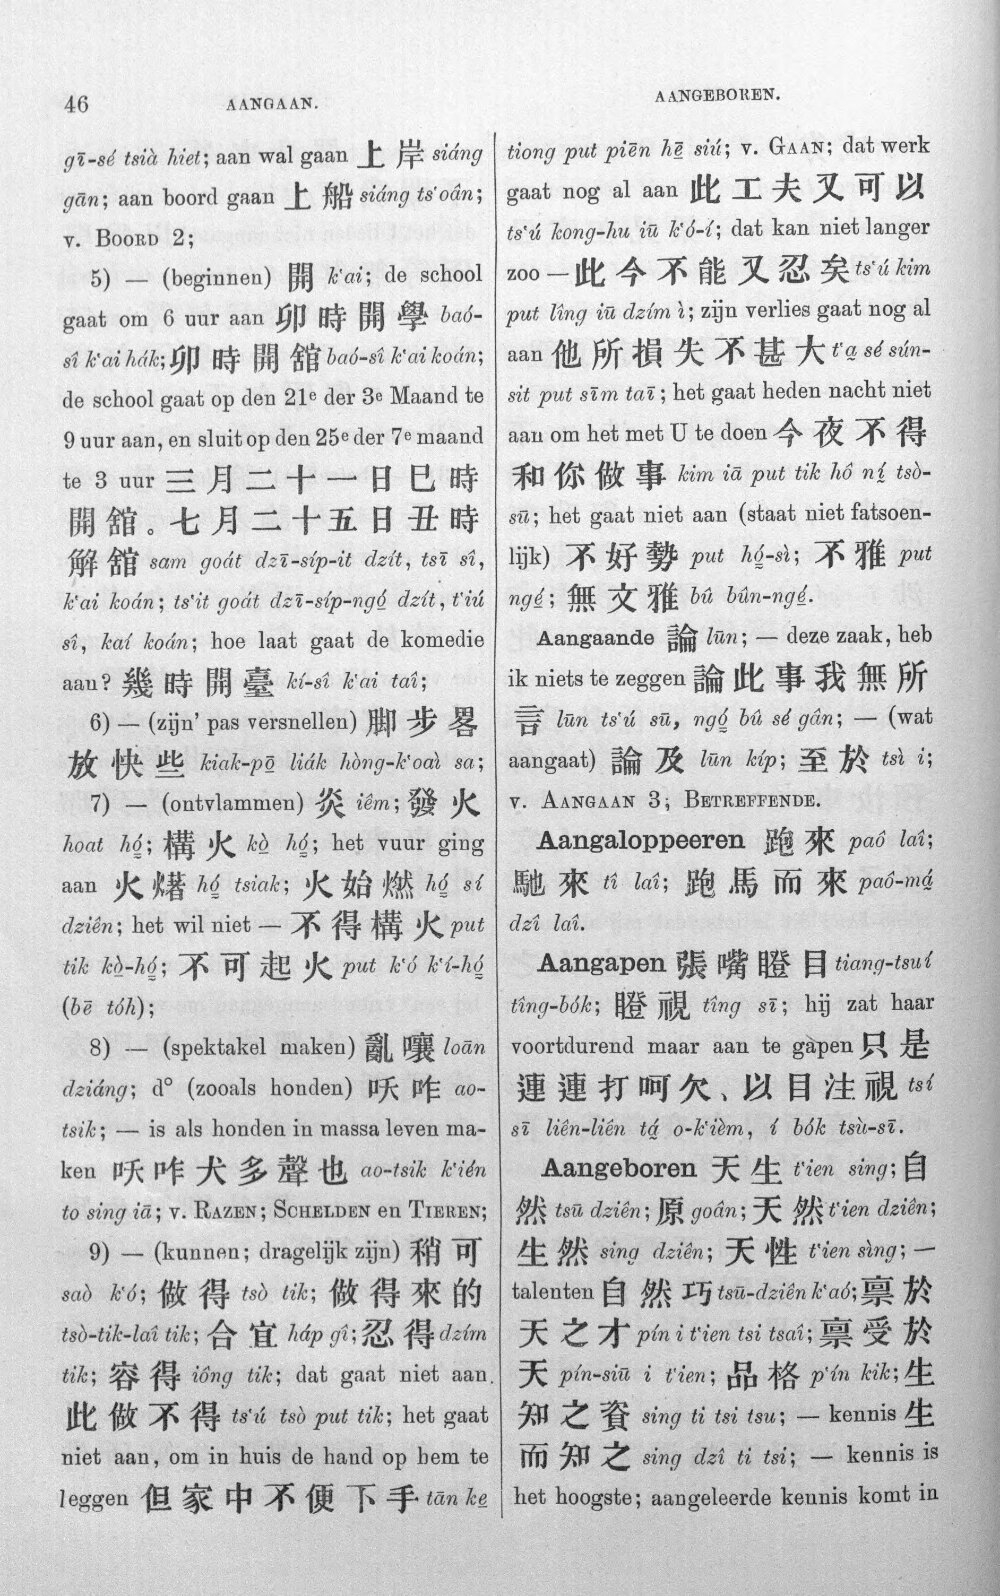 46 AANGAAN. AANGEBOREN.
gī-sé tsià hiet; aan wal gaan 上岸 siáng
gān; aan boord gaan 上船 siáng ts‘oân;
v. BOORD 2;
5) — (beginnen) 開 k‘ai; de school
gaat om 6 uur aan 卯時開學 baó-
sî k‘ai hák; 卯時開舘 baó-sî k‘ai koán;
de school gaat op den 21e der 3e Maand te
9 uur aan, en sluit op den 25e der 7e maand
te 3 uur 三月二十一日巳時
開舘。七月二十五日丑時
解舘 sam goát dzī-síp-it dzít, tsī sî,
k‘ai koán; ts‘it goát dzī-síp-ngó̤ dzít, t‘iú
sî, kaí koán; hoe laat gaat de komedie
aan? 幾時開臺 kí-sî k‘ai taî;
6) — (zijn' pas versnellen) 脚步畧
放快些 kiak-pō̤ liák hòng-k‘oaì sa;
7) — (ontvlammen) 炎 iêm; 發火
hoat hó̤; 構火 kò̤ hó̤; het vuur ging
aan 火㸃 hó̤ tsiak; 火始燃 hó̤ sí
dziên; het wil niet — 不得構火 put
tik kò̤-hó̤; 不可起火 put k‘ó k‘í-hó̤
(bē tóh);
8) — (spektakel maken) 亂嚷 loān
dziáng; d° (zooals honden) 呅咋 ao-
tsik; — is als honden in massa leven ma-
ken 呅咋犬多聲也 ao-tsik k‘ién
to sing iā; v. RAZEN; SCHELDEN en TIEREN;
9) — (kunnen; dragelijk zijn) 稍可
saò k‘ó; 做得 tsò tik; 做得來的
tsò-tik-laî tik; 合宜 háp gî; 忍得 dzím
tik; 容得 iông tik; dat gaat niet aan.
此做不得 ts‘ú tsò put tik; het gaat
niet aan, om in huis de hand op hem te
leggen 但家中不便下手 tān ke̤
tiong put piēn hē̤ siú; v. GAAN; dat werk
gaat nog al aan 此工夫又可以
ts‘ú kong-hu iū k‘ó-í; dat kan niet langer
zoo — 此今不能又忍矣 ts‘ú kim
put lîng iū dzím ì; zijn verlies gaat nog al
aan 他所損失不甚大 t‘a̤ sé sún-
sit put sīm taī; het gaat heden nacht niet
aan om het met U te doen 今夜不得
和你做事 kim iā put tik hô ní̤ tsò-
sū; het gaat niet aan (staat niet fatsoen-
lijk) 不好勢 put hó̤-sì; 不雅 put
ngé̤; 無文雅 bû bûn-ngé.
Aangaande 論 lūn; — deze zaak, heb
ik niets te zeggen 論此事我無所
言 lūn ts‘ú sū, ngó̤ bû sé gân; — (wat
aangaat) 論及 lūn kíp; 至於 tsì i;
v. AANGAAN 3; BETREFFENDE.
Aangaloppeeren 跑來 paô laî;
馳來 tî laî; 跑馬而來 paô-má̤
dzî laî.
Aangapen 張嘴瞪目 tiang-tsuí
tîng-bók; 瞪視 tîng sī; hij zat haar
voortdurend maar aan te gapen 只是
連連打呵欠、以目注視 tsí
sī liên-liên tá̤ o-k‘ièm, í bók tsù-sī.
Aangeboren 天生 t‘ien sing; 自
然 tsū dziên; 原 goân; 天然 t‘ien dziên;
生然 sing dziên; 天性 t‘ien sìng; —
talenten 自然巧 tsū-dziên k‘aó; 禀於
天之才 pín i t‘ien tsi tsaî; 禀受於
天 pín-siū i t‘ien; 品格 p‘ín kik; 生
知之資 sing ti tsi tsu; — kennis 生
而知之 sing dzî ti tsi; — kennis is
het hoogste; aangeleerde kennis komt in